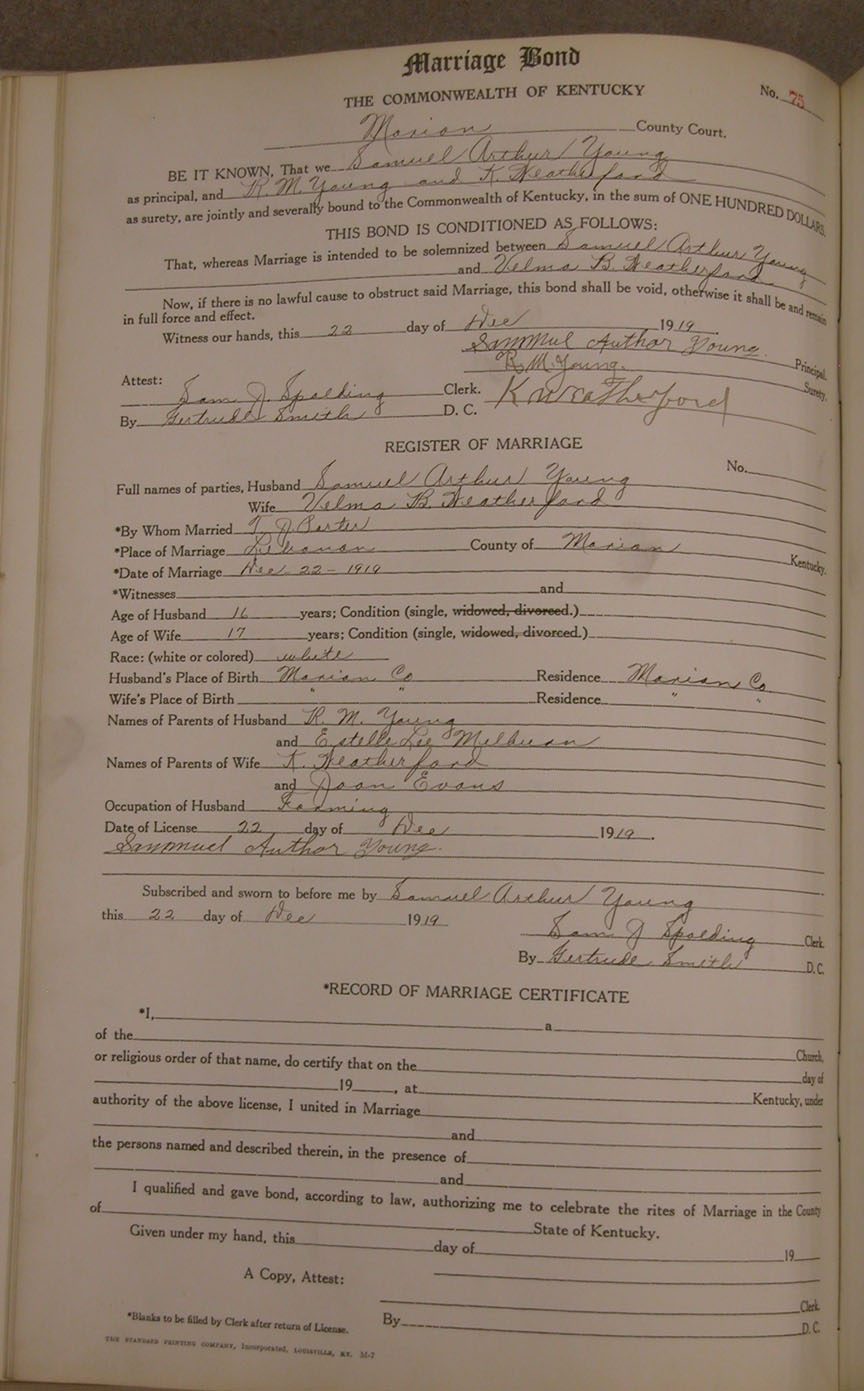 Marriage Bond
THE COMMONWEALTH OF KENTUCKY
No. 75
Marion County Court.
BE IT KNOWN, That we Samuel Arthur Young
as principal, and R. M. Young and K. Weatherford
as surety, are jointly and severally bound to the Commonwealth of Kentucky, in the sum of ONE HUNDRED DOLLARS.
THIS BOND IS CONDITIONED AS FOLLOWS:
That, whereas Marriage is intended to be solemnized between Samuel Arthur Young
and Velma B. Weatherford
Now, if there is no lawful cause to obstruct said Marriage, this bond shall be void, otherwise it shall be and remain
in full force and effect.
Witness our hands, this 22 day of Dec 1919.
Sammul Author Young.
R. M. Young. Principal.
Attest: Surety.
Sam J. Spalding Clerk. K Weatherford
By Gertrude Smith D. C.
REGISTER OF MARRIAGE
No.
Full names of parties, Husband Samuel Arthur Young
Wife Velma B. Weatherford
*By Whom Married T. J. Porter
*Place of Marriage Lebanon County of Marion Kentucky.
*Date of Marriage Dec 22 - 1919
*Witnesses and
Age of Husband 16 years; Condition (single, widowed, divorced.)
Age of Wife 17 years; Condition (single, widowed, divorced.)
Race: (white or colored) white
Husband's Place of Birth Marion Co Residence Marion Co
Wife's Place of Birth " " Residence " "
Names of Parents of Husband R. M. Young
and Estelle Lee Milburn
Names of Parents of Wife K. Weatherford
and Joan Evans
Occupation of Husband Farming
Date of License 22 day of Dec 1919.
Sammuel Author Young.
Subscribed and sworn to before me by Samuel Arthur Young
this 22 day of Dec 1919
Sam J Spalding Clerk.
By Gertrude Smith D. C.
*RECORD OF MARRIAGE CERTIFICATE
*I, a
of the Church,
or religious order of that name, do certify that on the day of
19 , at Kentucky, under
authority of the above license, I united in Marriage
and
the persons named and described therein, in the presence of
and
I qualified and gave bond, according to law, authorizing me to celebrate the rites of Marriage in the County
of State of Kentucky.
Given under my hand, this day of 19
A Copy, Attest:
Clerk.
*Blanks to be filled by Clerk after return of License. By D. C.
THE STANDARD PRINTING COMPANY, Incorporated, LOUISVILLE, KY. M-7